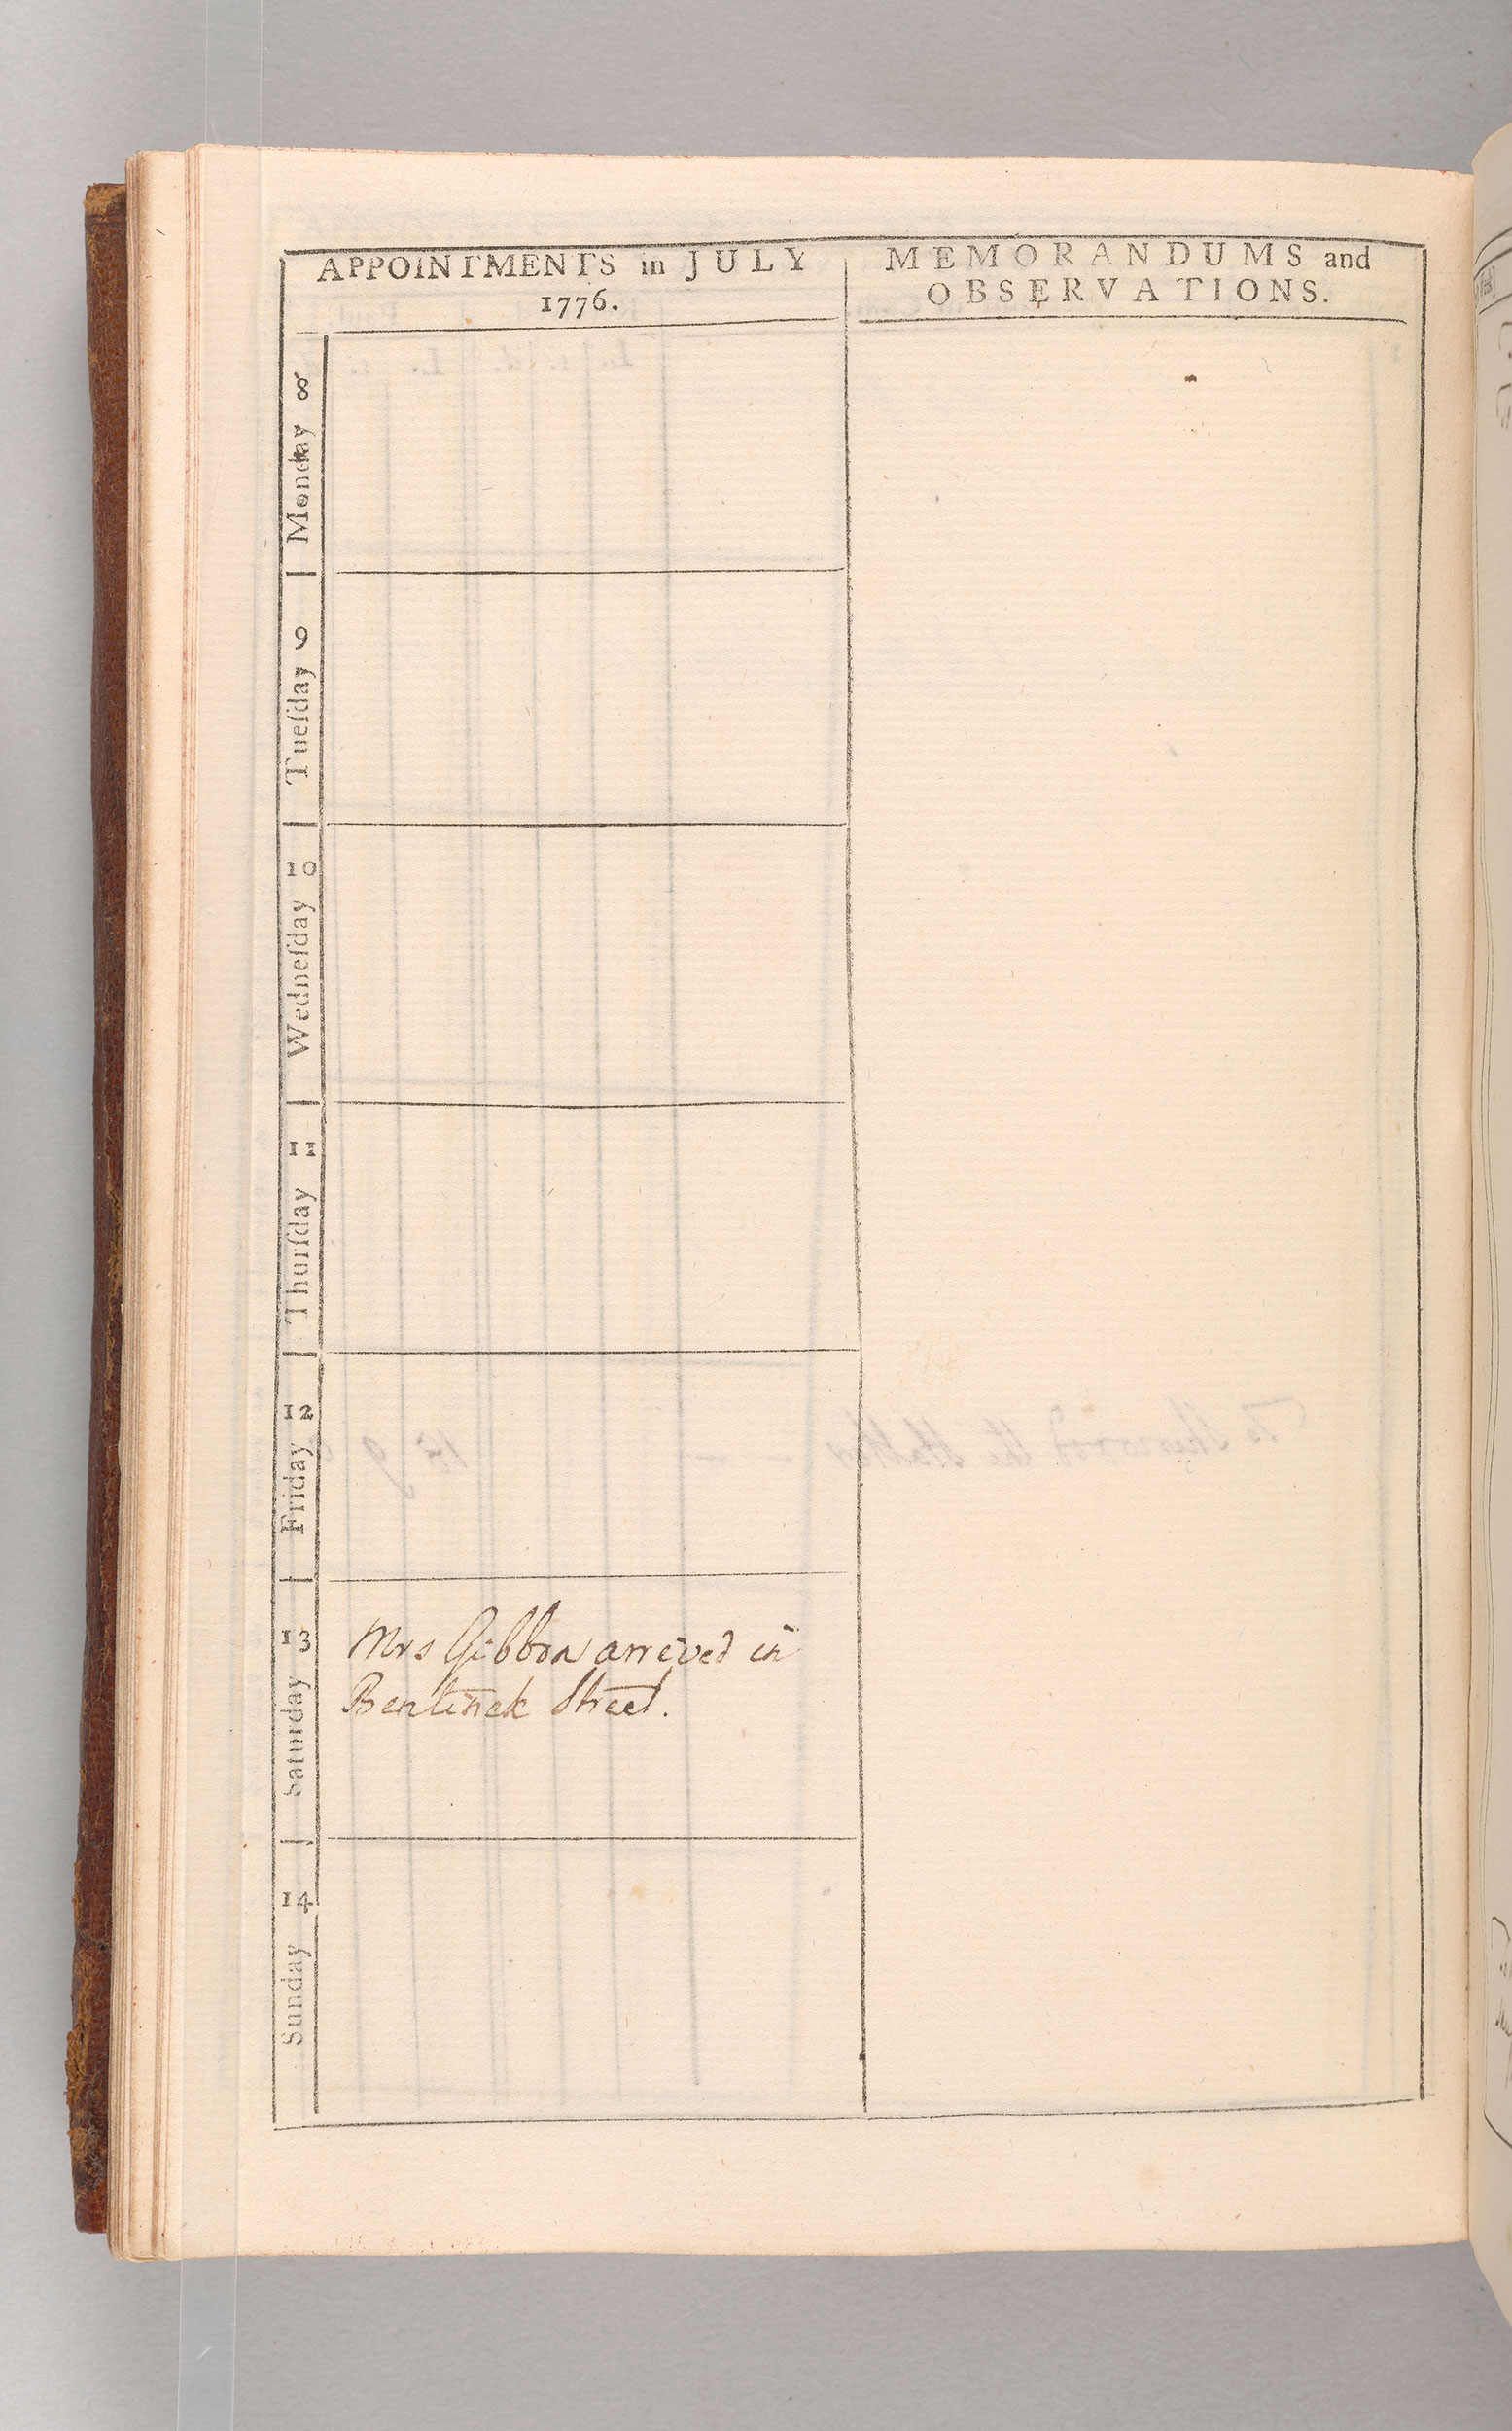 APPOINTMENTS in JULY
1776.
MEMORANDUMS and
OBSERVATIONS.
Monday 8
Tueſday 9
Wedneſday 10
Thurſday 11
Friday 12
Saturday 13
Mrs Gibbon arrived in
Bentinck Street.
Sunday 14